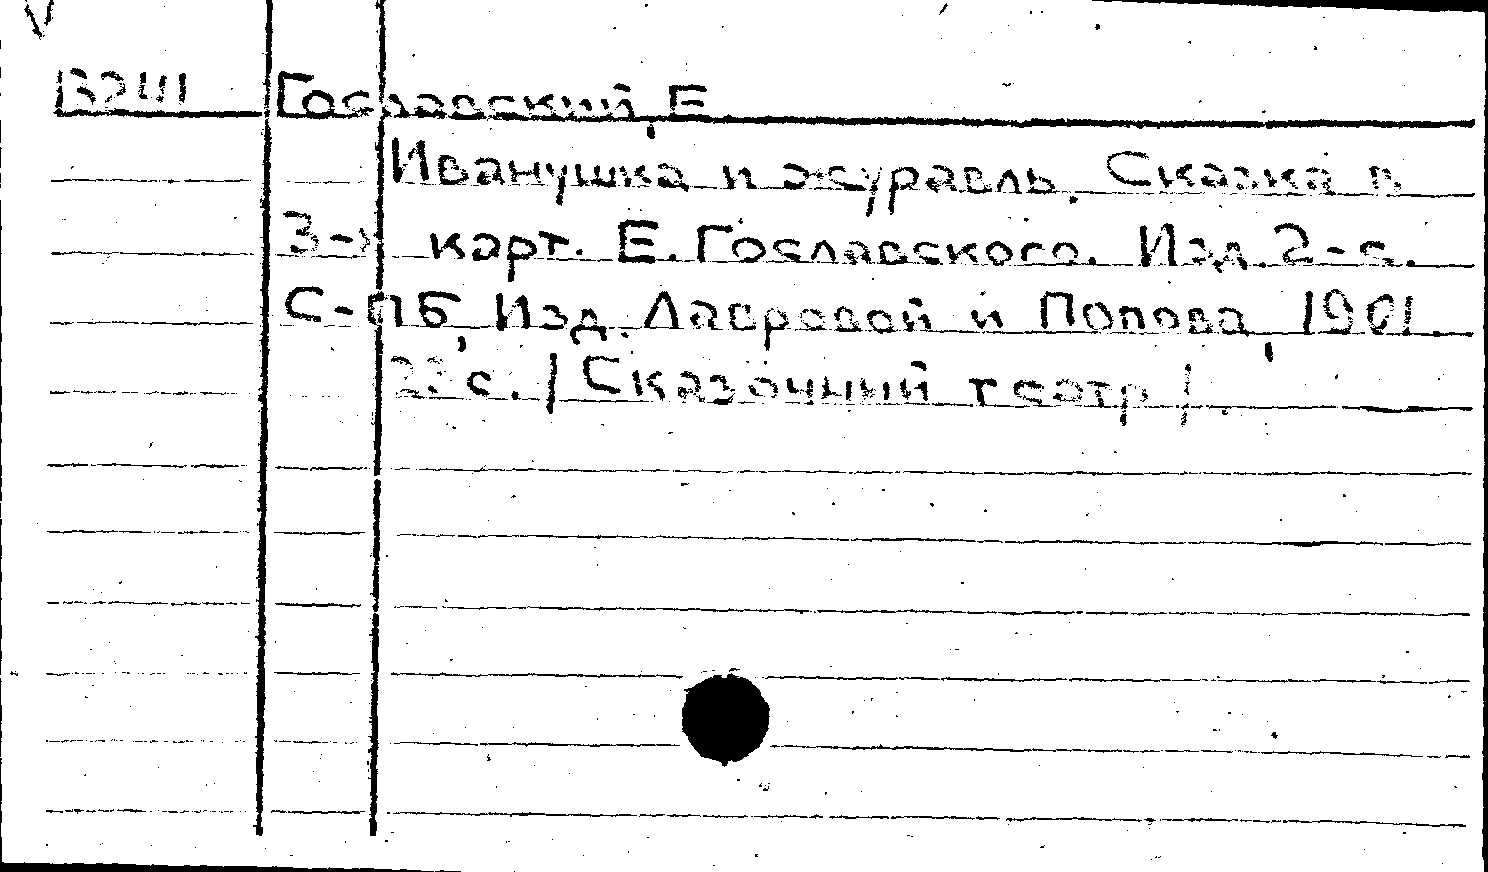 V
В2Ш Гославский, Е.
Иванушка и журавль. Сказка в
3-х карт. Е. Гославского. Изд. 2-е.
С-ПБ, Изд. Лавровой и Попова, 1901.
23 с. /Сказочный театр/.